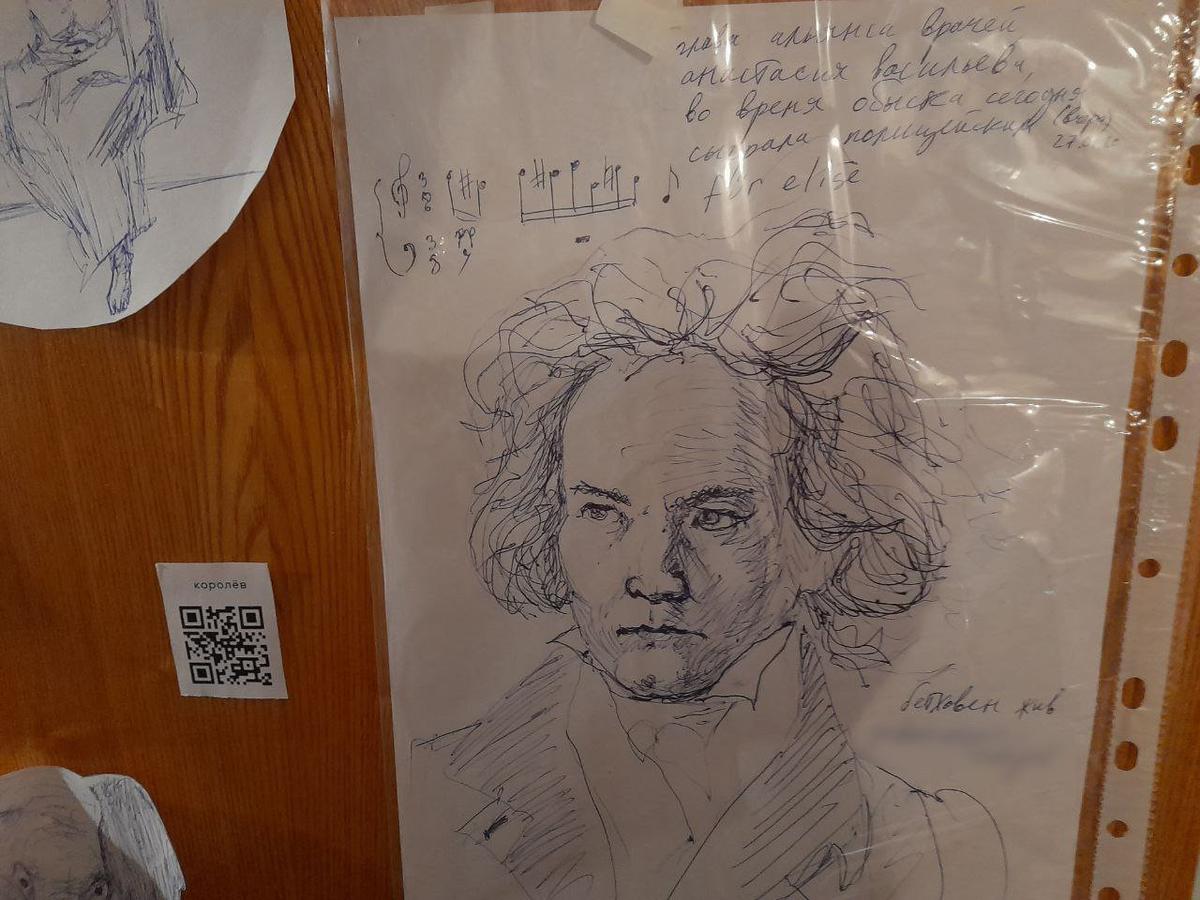 глава альянса врачей
анастасия васильева,
во время обыска сегодня
(вчера)
сыграла полицейским
für elise
3
8
3
8
pp
королёв
бетховен жив